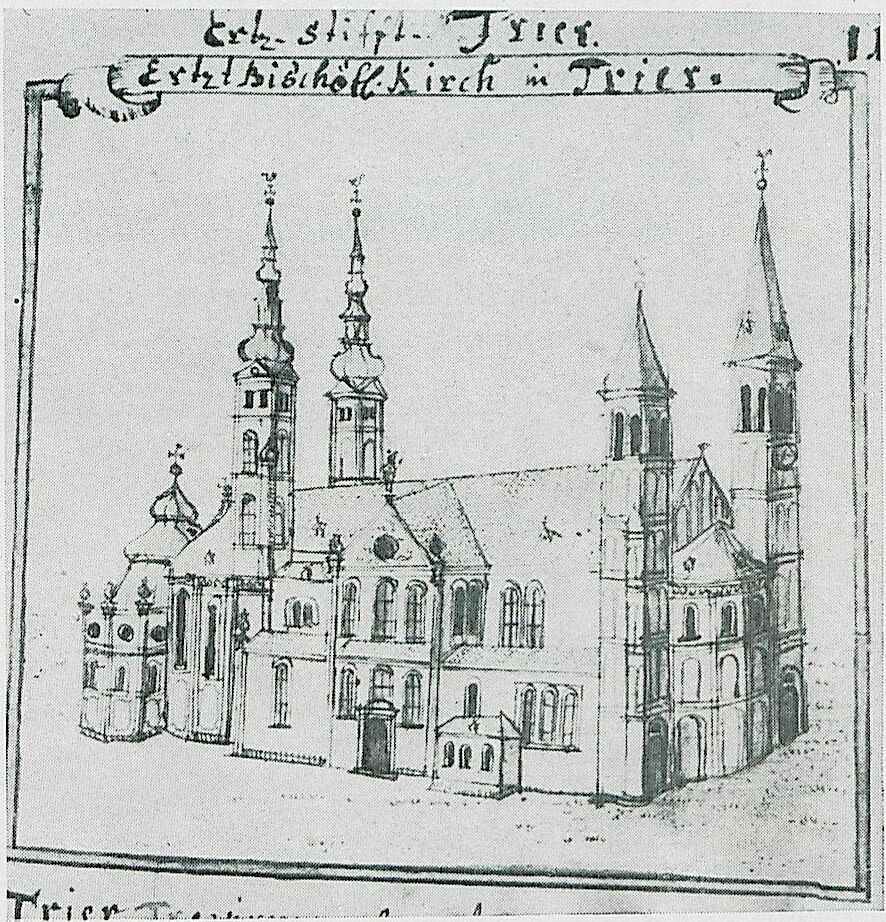 Ertz-Stifft-Trier. 11
ErtztBischöfl. Kirch in Trier.
Trier